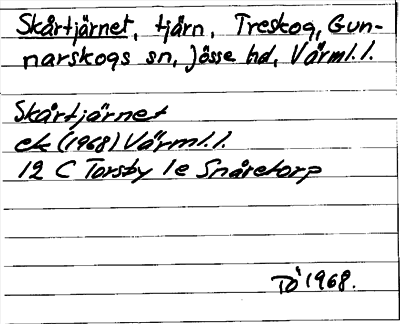 Skårtjärnet, tjärn, Treskog, Gun-
narskogs sn, Jösse hd, Värml. l.
Skårtjärnet
ek (1968) Värml. l.
12 C Torsby 1e Snåretorp
TÖ 1968.